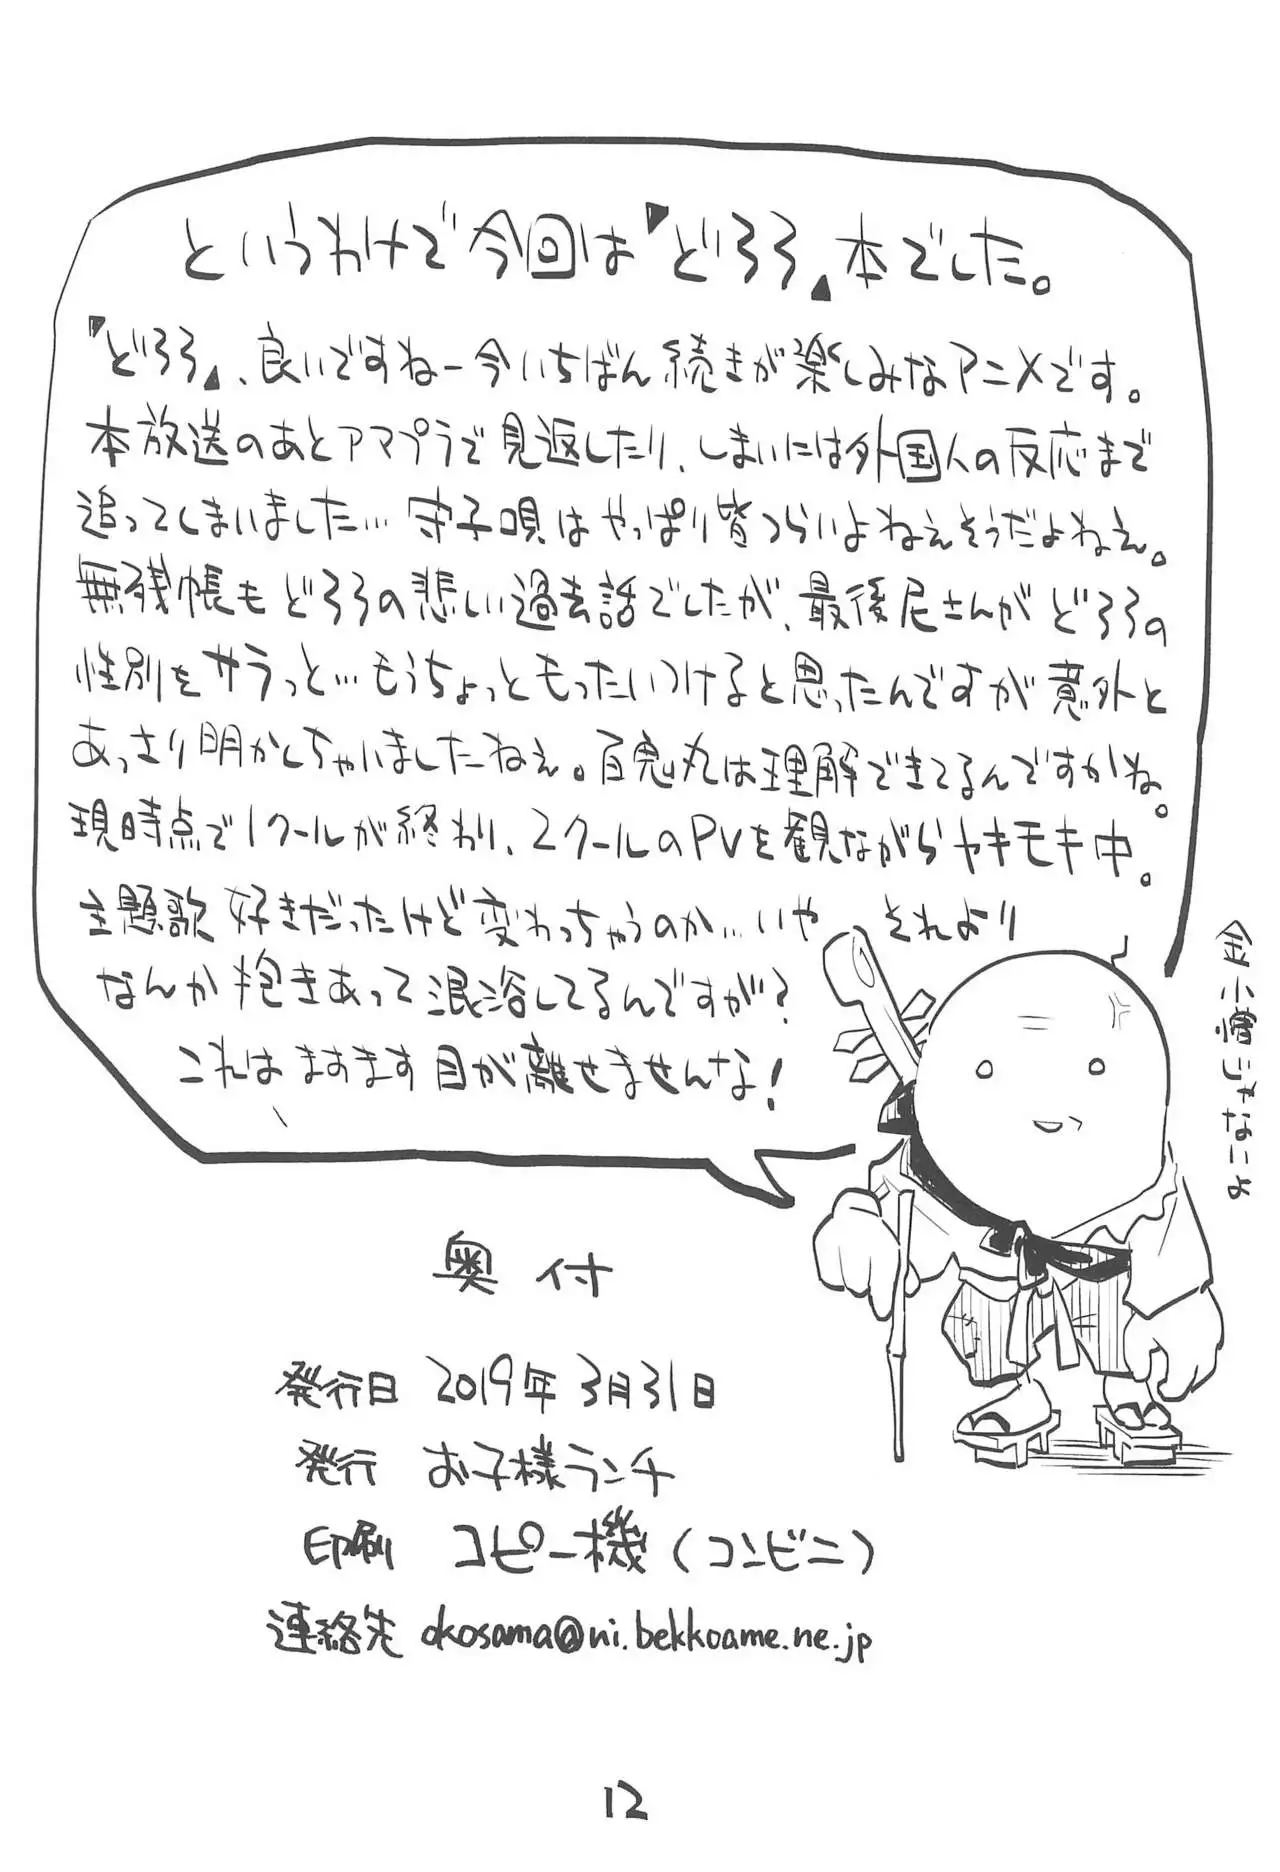 というわけで今回は『どろろ』本でした。
『どろろ』、良いですねー今いちばん続きが楽しみなアニメです。
本放送のあとアマプラで見返したり、しまいには外国人の反応まで
追ってしまいました… 守子唄はやっぱり皆つらいよねぇそうだよねぇ。
無残帳もどろろの悲しい過去話でしたが、最後尼さんがどろろの
性別をサラっと…もうちょっともったいつけると思ったんですが意外と
あっさり明かしちゃいましたねぇ。百鬼丸は理解できてるんですかね。
現時点で1クールが終わり、2クールのPVを観ながらヤキモキ中。
主題歌好きだったけど変わっちゃうのか…いや それより
なんか抱きあって混浴してるんですが?
これはますます目が離せませんな!
金小僧じゃないよ
奥付
発行日 2019年3月31日
発行 お子様ランチ
印刷 コピー機(コンビニ)
連絡先 okosama@ni.bekkoame.ne.jp
12